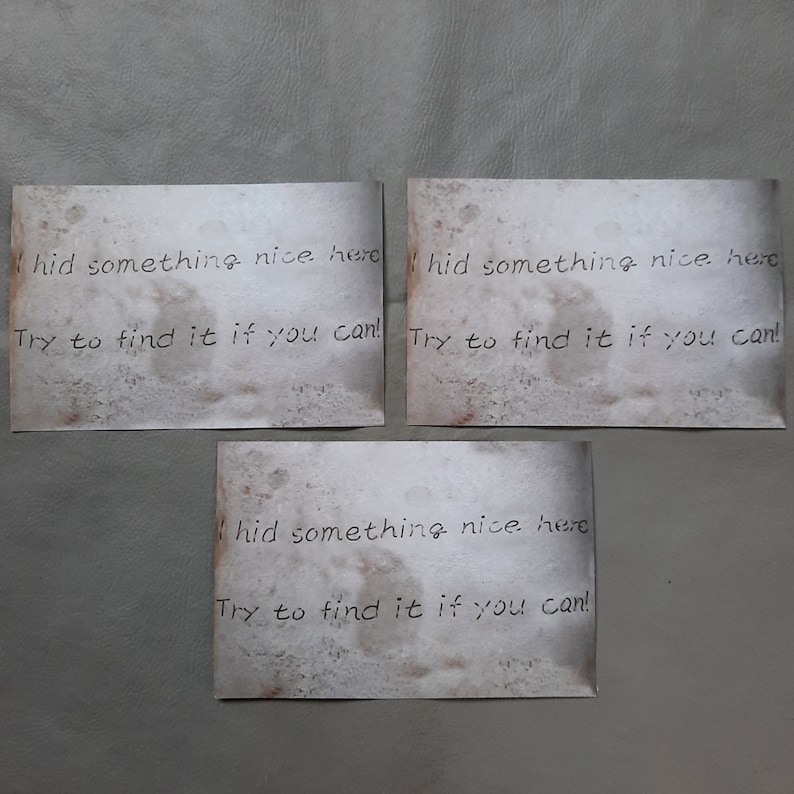 I hid something nice here
Try to find it if you can!
I hid something nice here
Try to find it if you can!
I hid something nice here
Try to find it if you can!